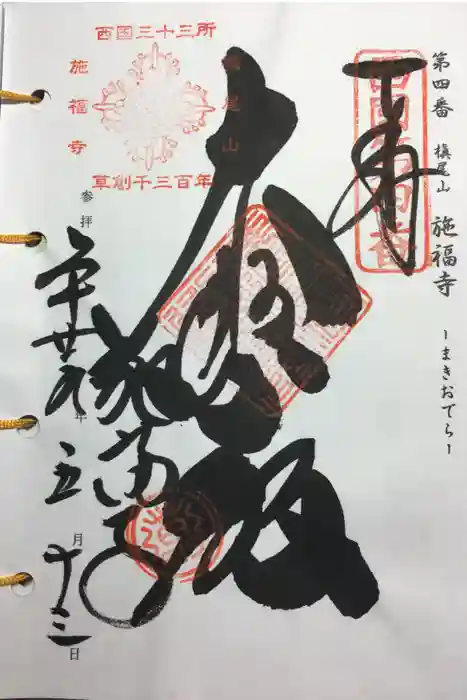 第四番 槇尾山 施福寺 ーまきおでらー
西国第四番
奉
大悲殿
施福寺
西国三十三所
草創千三百年
槇尾山
施福寺
参拝
平廿九年五月十三日